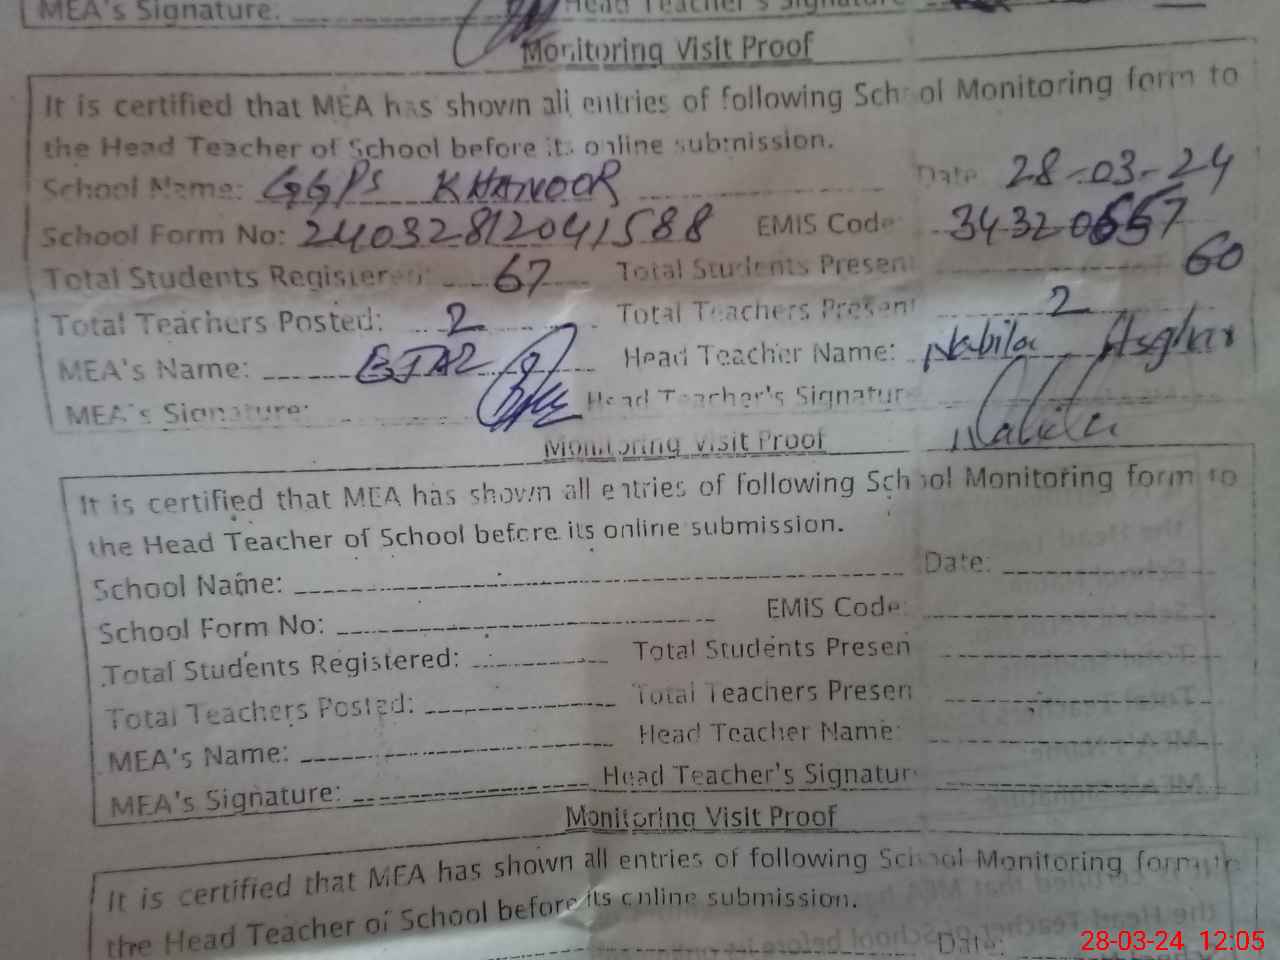 MEA's Signature: Head Teacher's Signature
Monitoring Visit Proof
It is certified that MEA has shown all entries of following School Monitoring form to
the Head Teacher of School before its online submission.
School Name: GGPS KHANOOR Date 28-03-24
School Form No: 24032812041588 EMIS Code: 34320657
Total Students Registered: 67 Total Students Present 60
Total Teachers Posted: 2 Total Teachers Present 2
MEA's Name: EJAZ Head Teacher Name: Nabila Asghar
MEA's Signature: Head Teacher's Signature Nabila
Monitoring Visit Proof
It is certified that MEA has shown all entries of following School Monitoring form to
the Head Teacher of School before its online submission.
School Name: Date:
School Form No: EMIS Code:
Total Students Registered: Total Students Presen
Total Teachers Posted: Total Teachers Presen
MEA's Name: Head Teacher Name:
MEA's Signature: Head Teacher's Signatur
Monitoring Visit Proof
It is certified that MEA has shown all entries of following School Monitoring form to
the Head Teacher of School before its online submission.
Date:
28-03-24 12:05